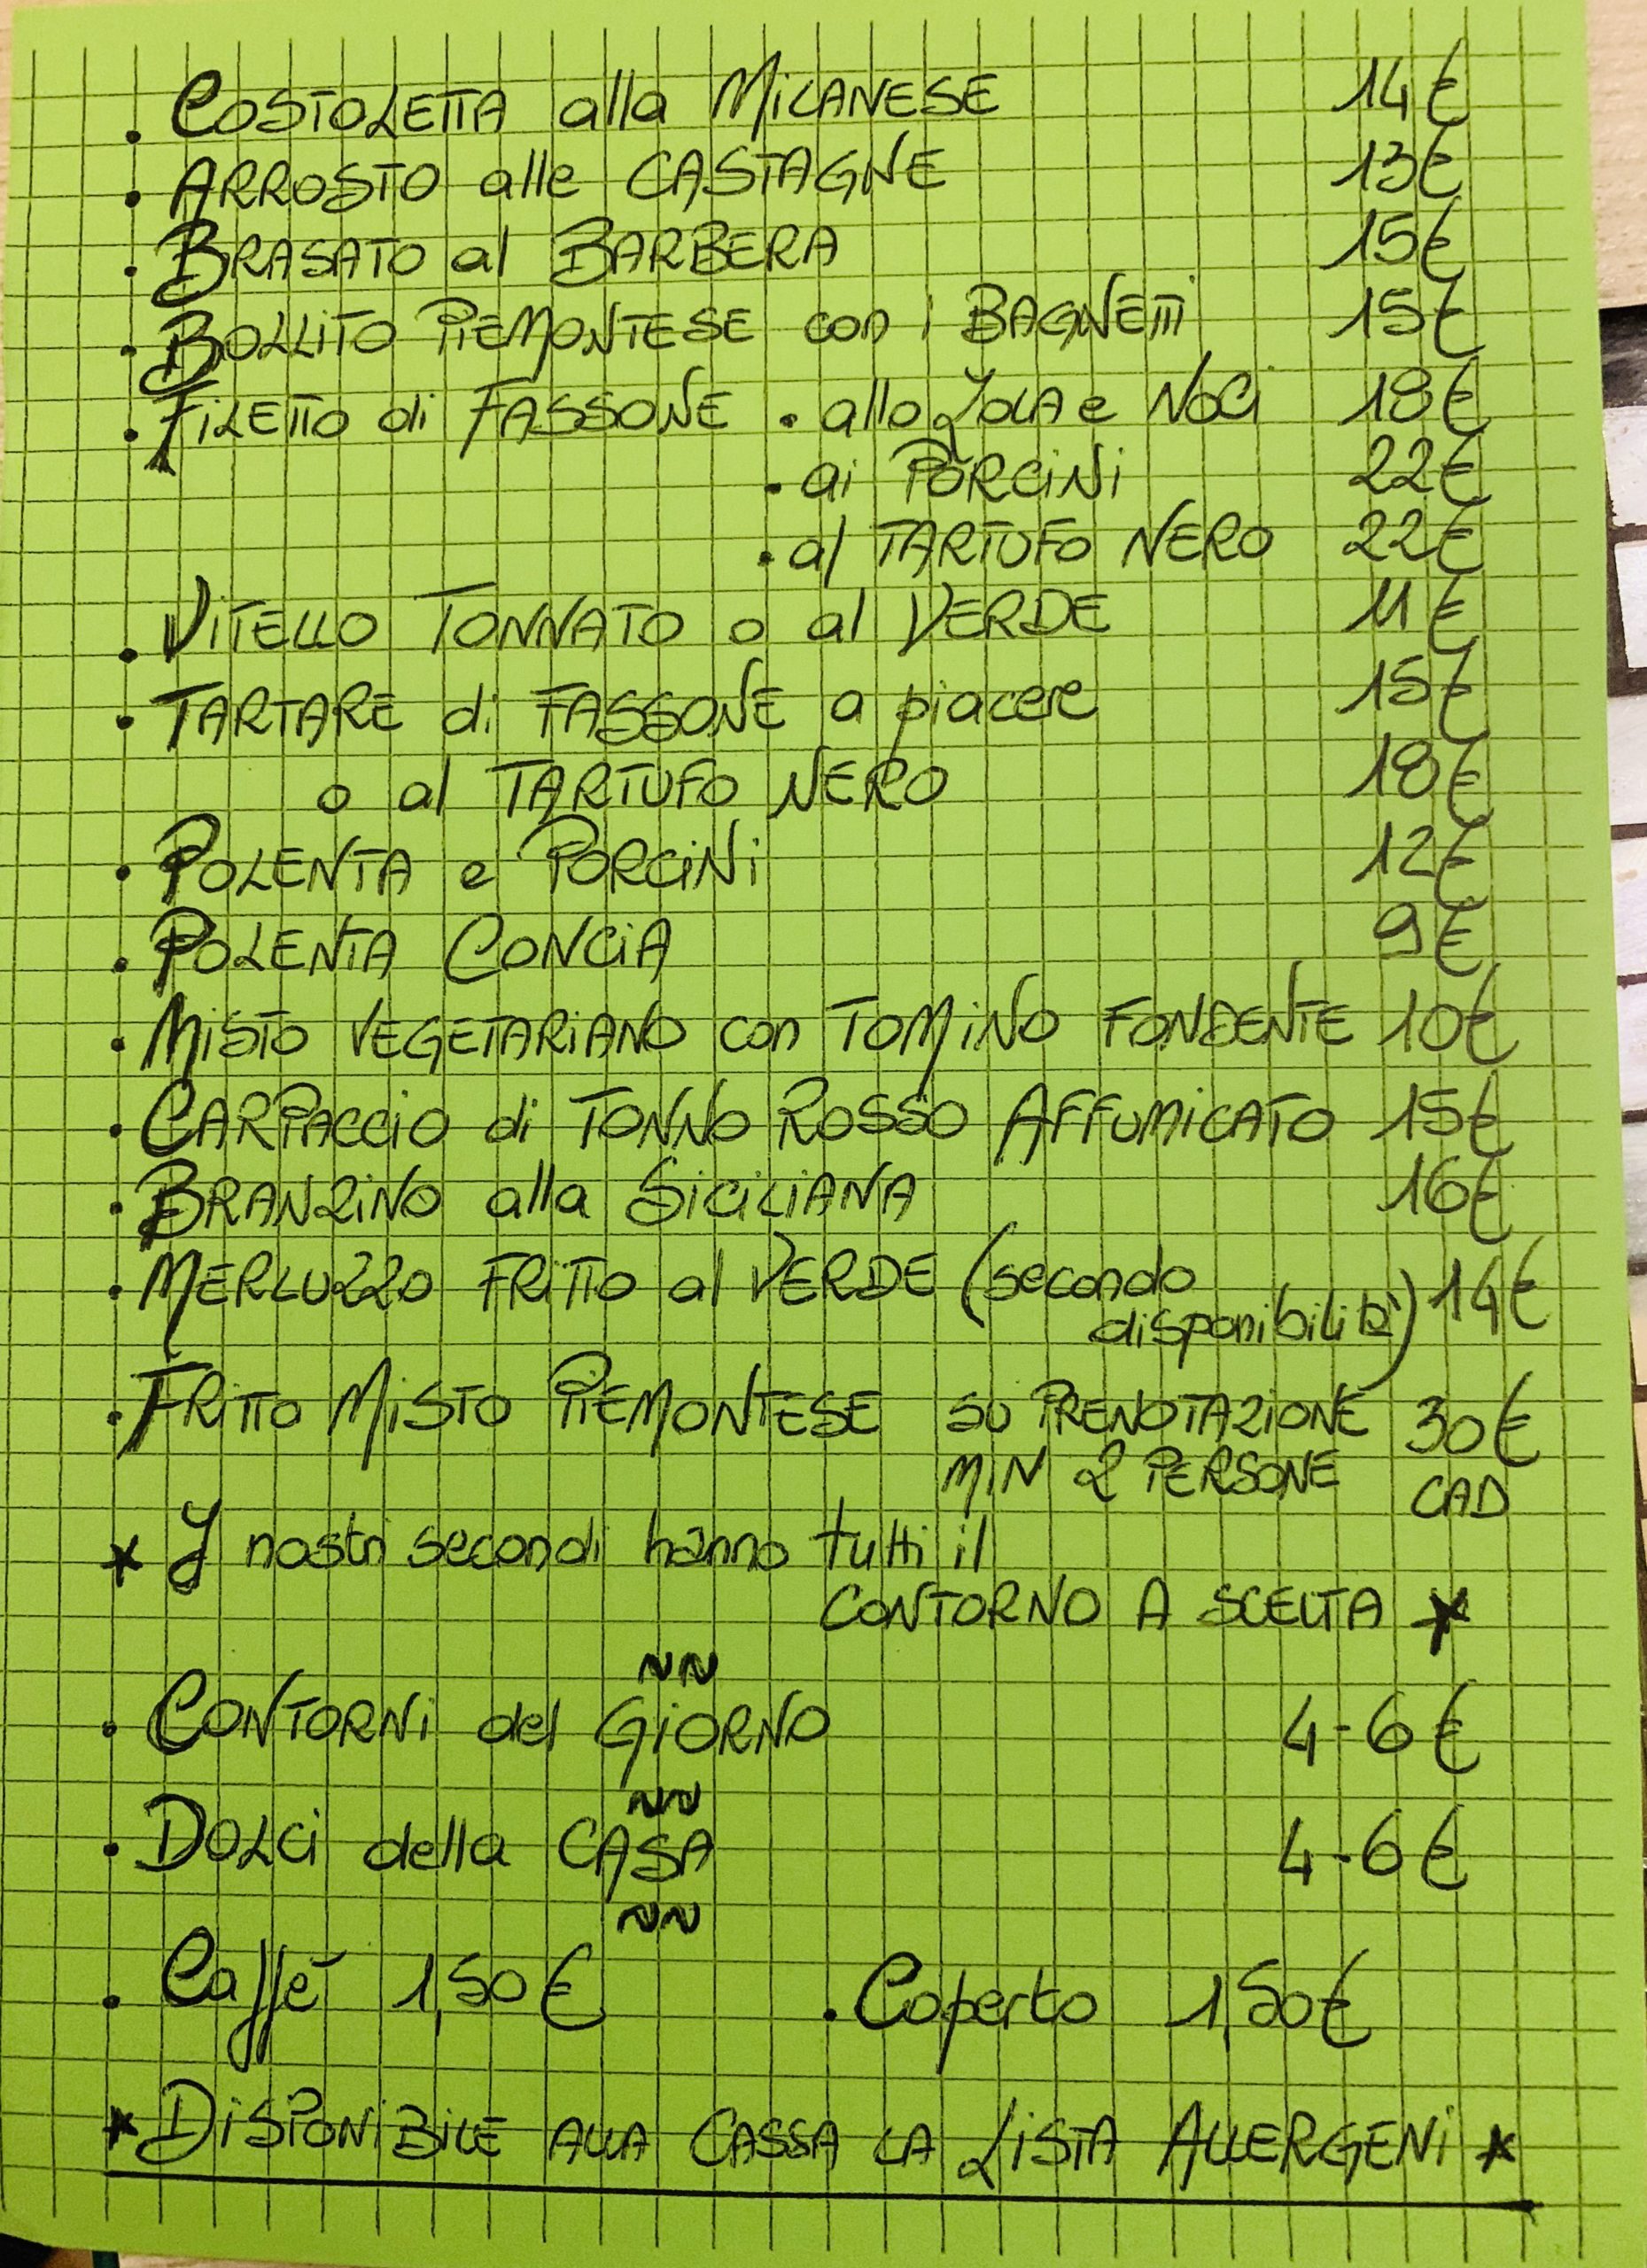 . COSTOLETTA alla MILANESE 14€
. ARROSTO alle CASTAGNE 13€
. BRASATO al BARBERA 15€
. BOLLITO PIEMONTESE con i BAGNETTI 15€
. FILETTO di FASSONE . allo ZOLA e NOCI 18€
. ai PORCINI 22€
. al TARTUFO NERO 22€
. VITELLO TONNATO o al VERDE 11€
. TARTARE di FASSONE a piacere 15€
o al TARTUFO NERO 18€
. POLENTA e PORCINI 12€
. POLENTA CONCIA 9€
. MISTO VEGETARIANO con TOMINO FONDENTE 10€
. CARPACCIO di TONNO ROSSO AFFUMICATO 15€
. BRANZINO alla SICILIANA 16€
. MERLUZZO FRITTO al VERDE (secondo
disponibilità) 14€
. FRITTO MISTO PIEMONTESE SU PRENOTAZIONE 30€
MIN 2 PERSONE CAD
* I nostri secondi hanno tutti il
CONTORNO A SCELTA *
. CONTORNI del GIORNO 4-6€
. DOLCI della CASA 4-6€
. Caffè 1,50€ . Coperto 1,50€
* DISPONIBILE ALLA CASSA LA LISTA ALLERGENI *